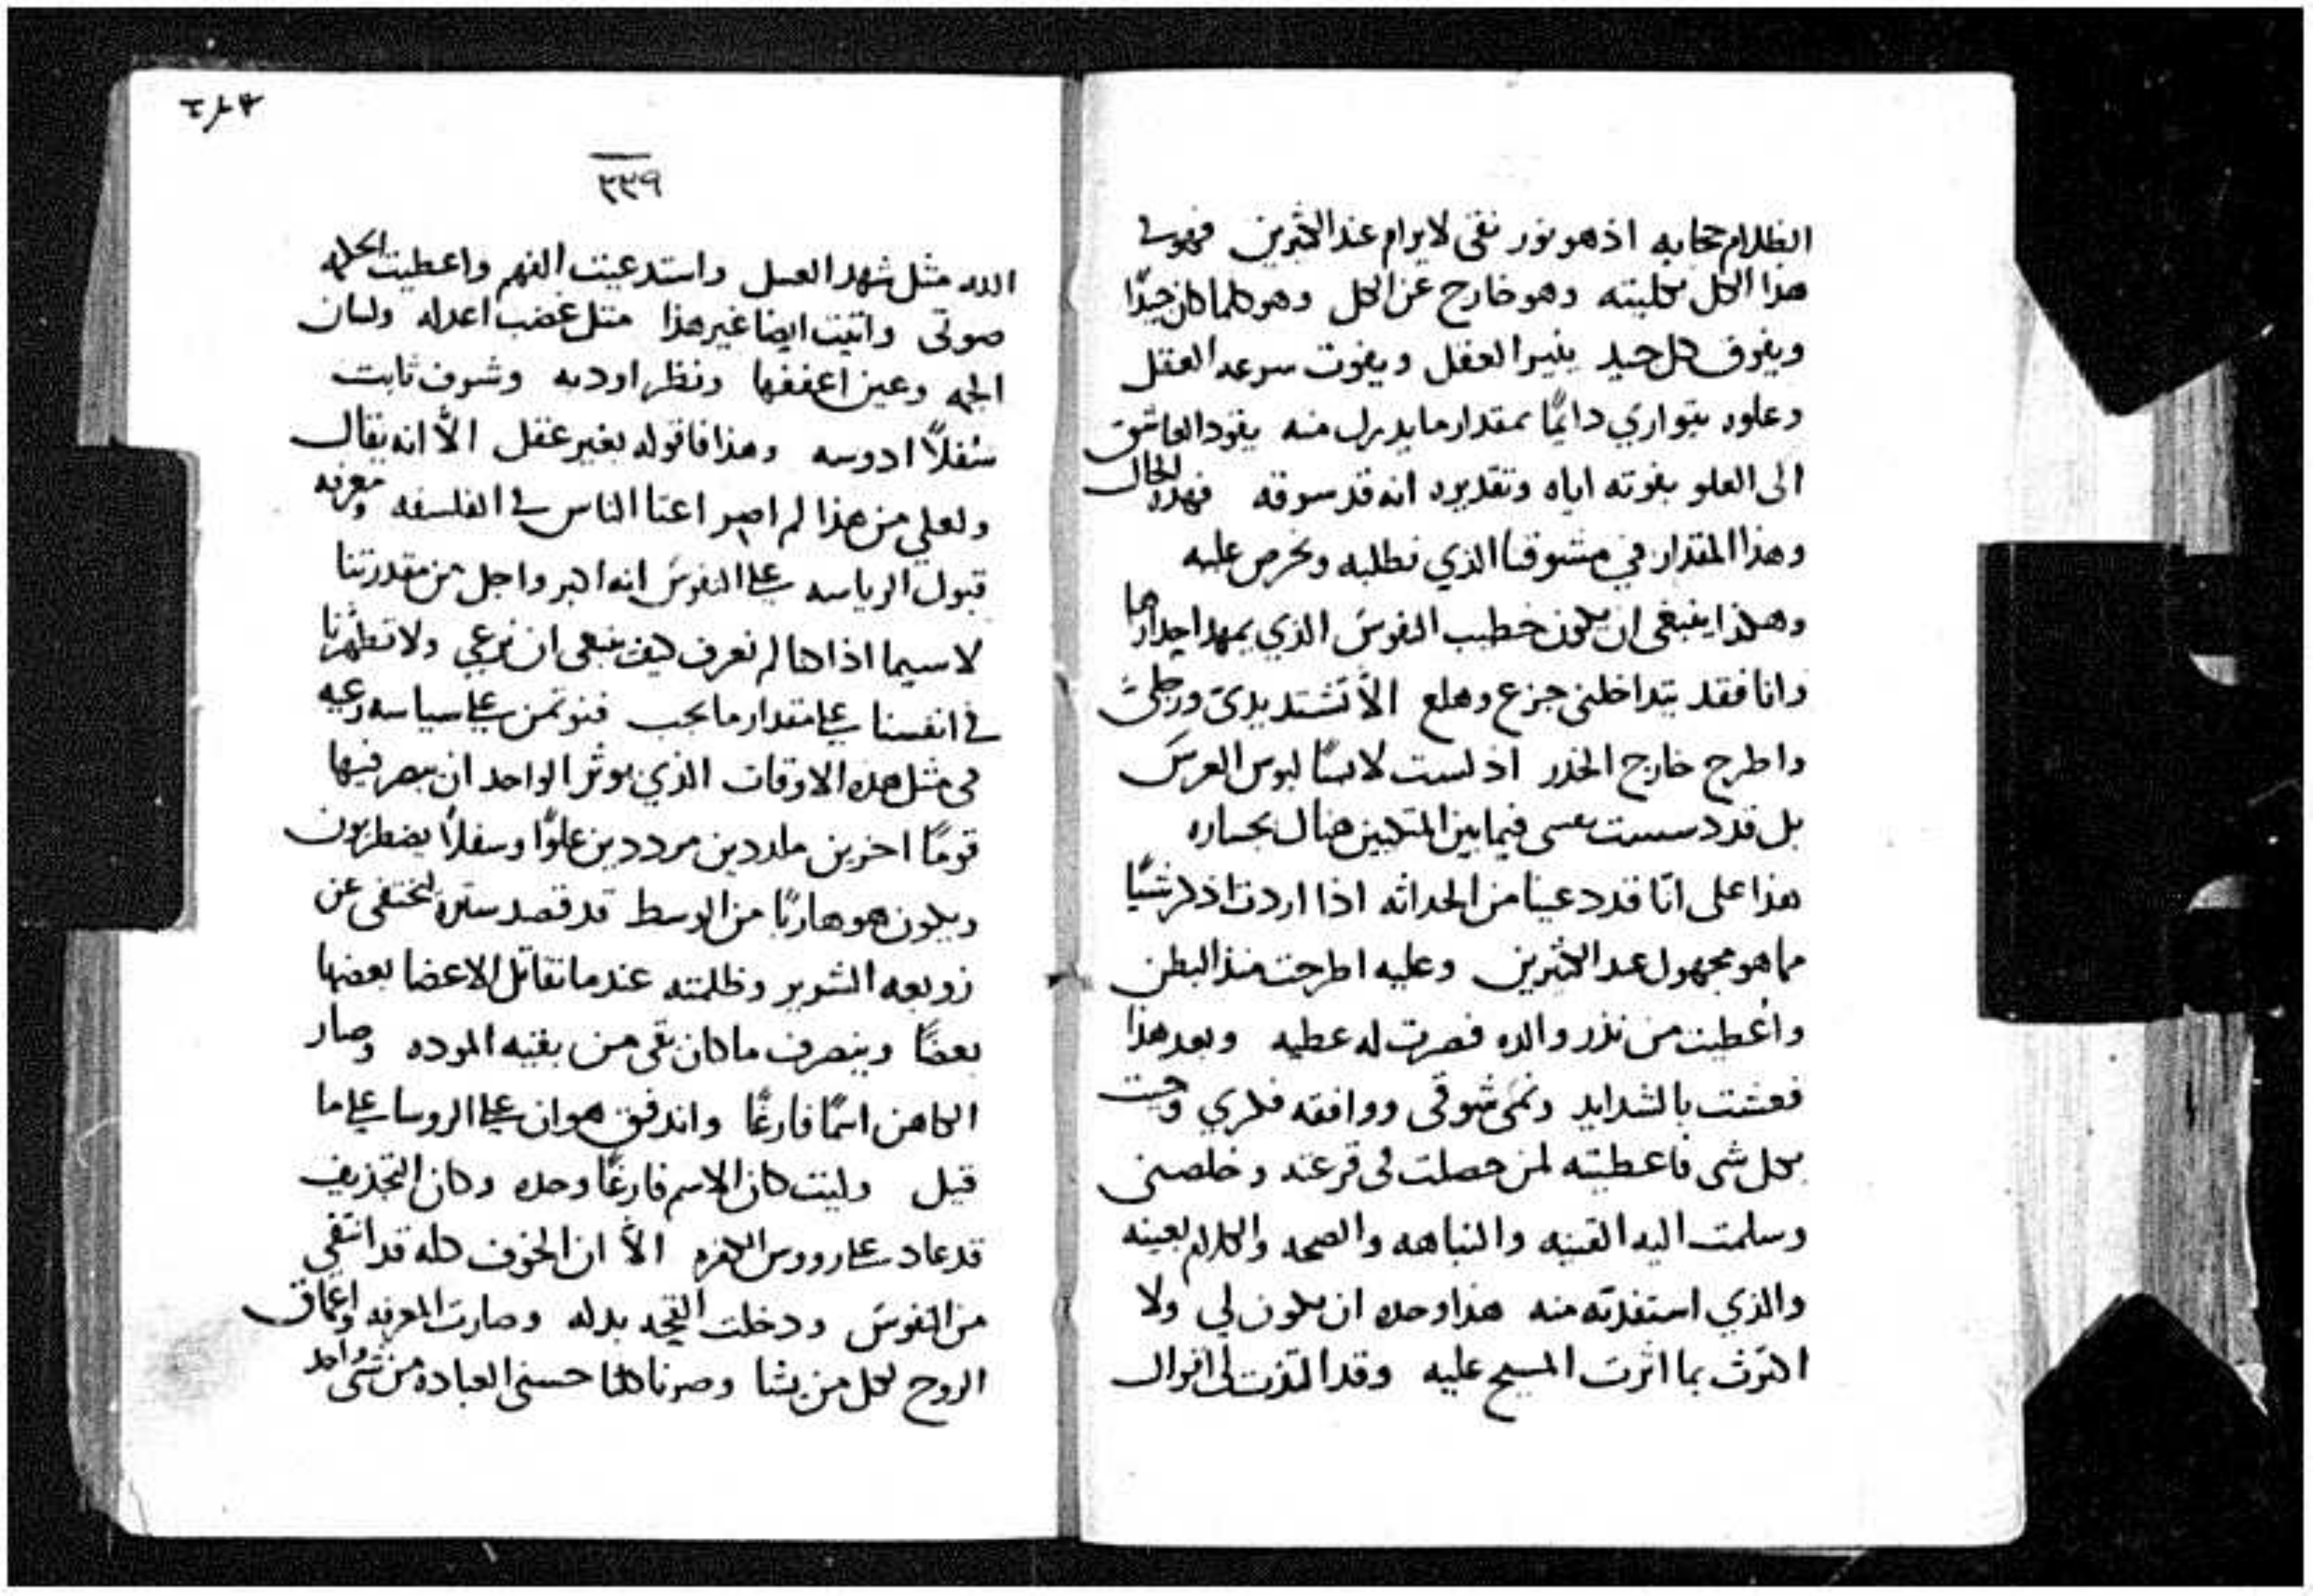 الظلام حجابه اذ هو نور نقى لا يرام عند الكثيرين فهو فى
هذا الكل بكليته وهو خارج عن الكل وهو كلما كان جيدًا
ويفوق كل جيد ينير العقل ويفوت سرعه العقل
وعلوه يتوارى دايمًا بمقدار ما يدرك منه يقود العاشق
الى العلو بفوته اياه وتقديره انه قد سوقه فهذه الحال
وهذا المقدار فى مشوقنا الذي نطلبه ونحرص عليه
وهكذا ينبغى ان يكون خطيب النفوس الذي يمهد احدارها
وانا فقد يتداخلنى جزع وهلع الّا تشتد يدىّ ورجلىّ
واطرح خارج الخدر اذ لست لابسًا لبوس العرس
بل قد دسست نفسى فيما بين المتكيين هناك بجساره
هذا على انّا قد دعينا من الحداثه اذا اردت اذكر شيًا
مما هو مجهول عند الكثيرين وعليه اطرحت منذ البطن
واُعطيت من نذر والده فصرت له عطيه وبعد هذا
فعشت بالشدايد ونمى شوقى ووافقه فكري وجيت
بكل شى فاعطيته لمن حصلت فى قرعته وخلصنى
وسلمت اليه القنيه والنباهه والصحه والكلام بعينه
والذي استفدته منه هذا وحده ان يكون لي ولا
اكترث بما اثرت المسيح عليه وقد التذت لى اقوال
٣٣٩
الله مثل شهد العسل واستدعيت الفهم واعطيت الحكمه
صوتى واتيت ايضا غير هذا مثل غضب اعدله ولسان
الجمه وعين اعففها ونظر اودبه وشرف ثابت
سُفلًا ادوسه وهذا فاقوله بغير عقل الّا انه يقال
ولعلي من هذا لم اصير اعنا الناس فى الفلسفه ومعرفه
قبول الرياسه على النفوس انه اكبر واجل من مقدرتنا
لا سيما اذا كنا لم نعرف كيف ينبغى ان نرعي ولا تطهرنا
فى انفسنا على مقدار ما يجب فنوتمن على سياسه رعيه
فى مثل هذه الاوقات الذي يوثر الواحد ان يبصر فيها
قومًا اخرين مكددين مرددين علوًا وسفلًا يضطربون
ويكون هو هاربًا من الوسط قد قصد ستره ليختفى عن
زوبعه الشرير وظلمته عندما تقاتل الاعضا بعضها
بعضًا وينصرف ما كان بقى من بقيه الموده وصار
الكاهن اسمًا فارغًا واندفق هوان على الروسا على ما
قيل وليت كان الاسم فارغًا وحده وكان التجذيف
قد عاد على رووس الكفره الّا ان الخوف كله قد انتفى
من النفوس ودخلت القحه بدله وصارت المعرفه واعماق
الروح لكل من يشا وصرنا كلنا حسنى العباده من شى واحد